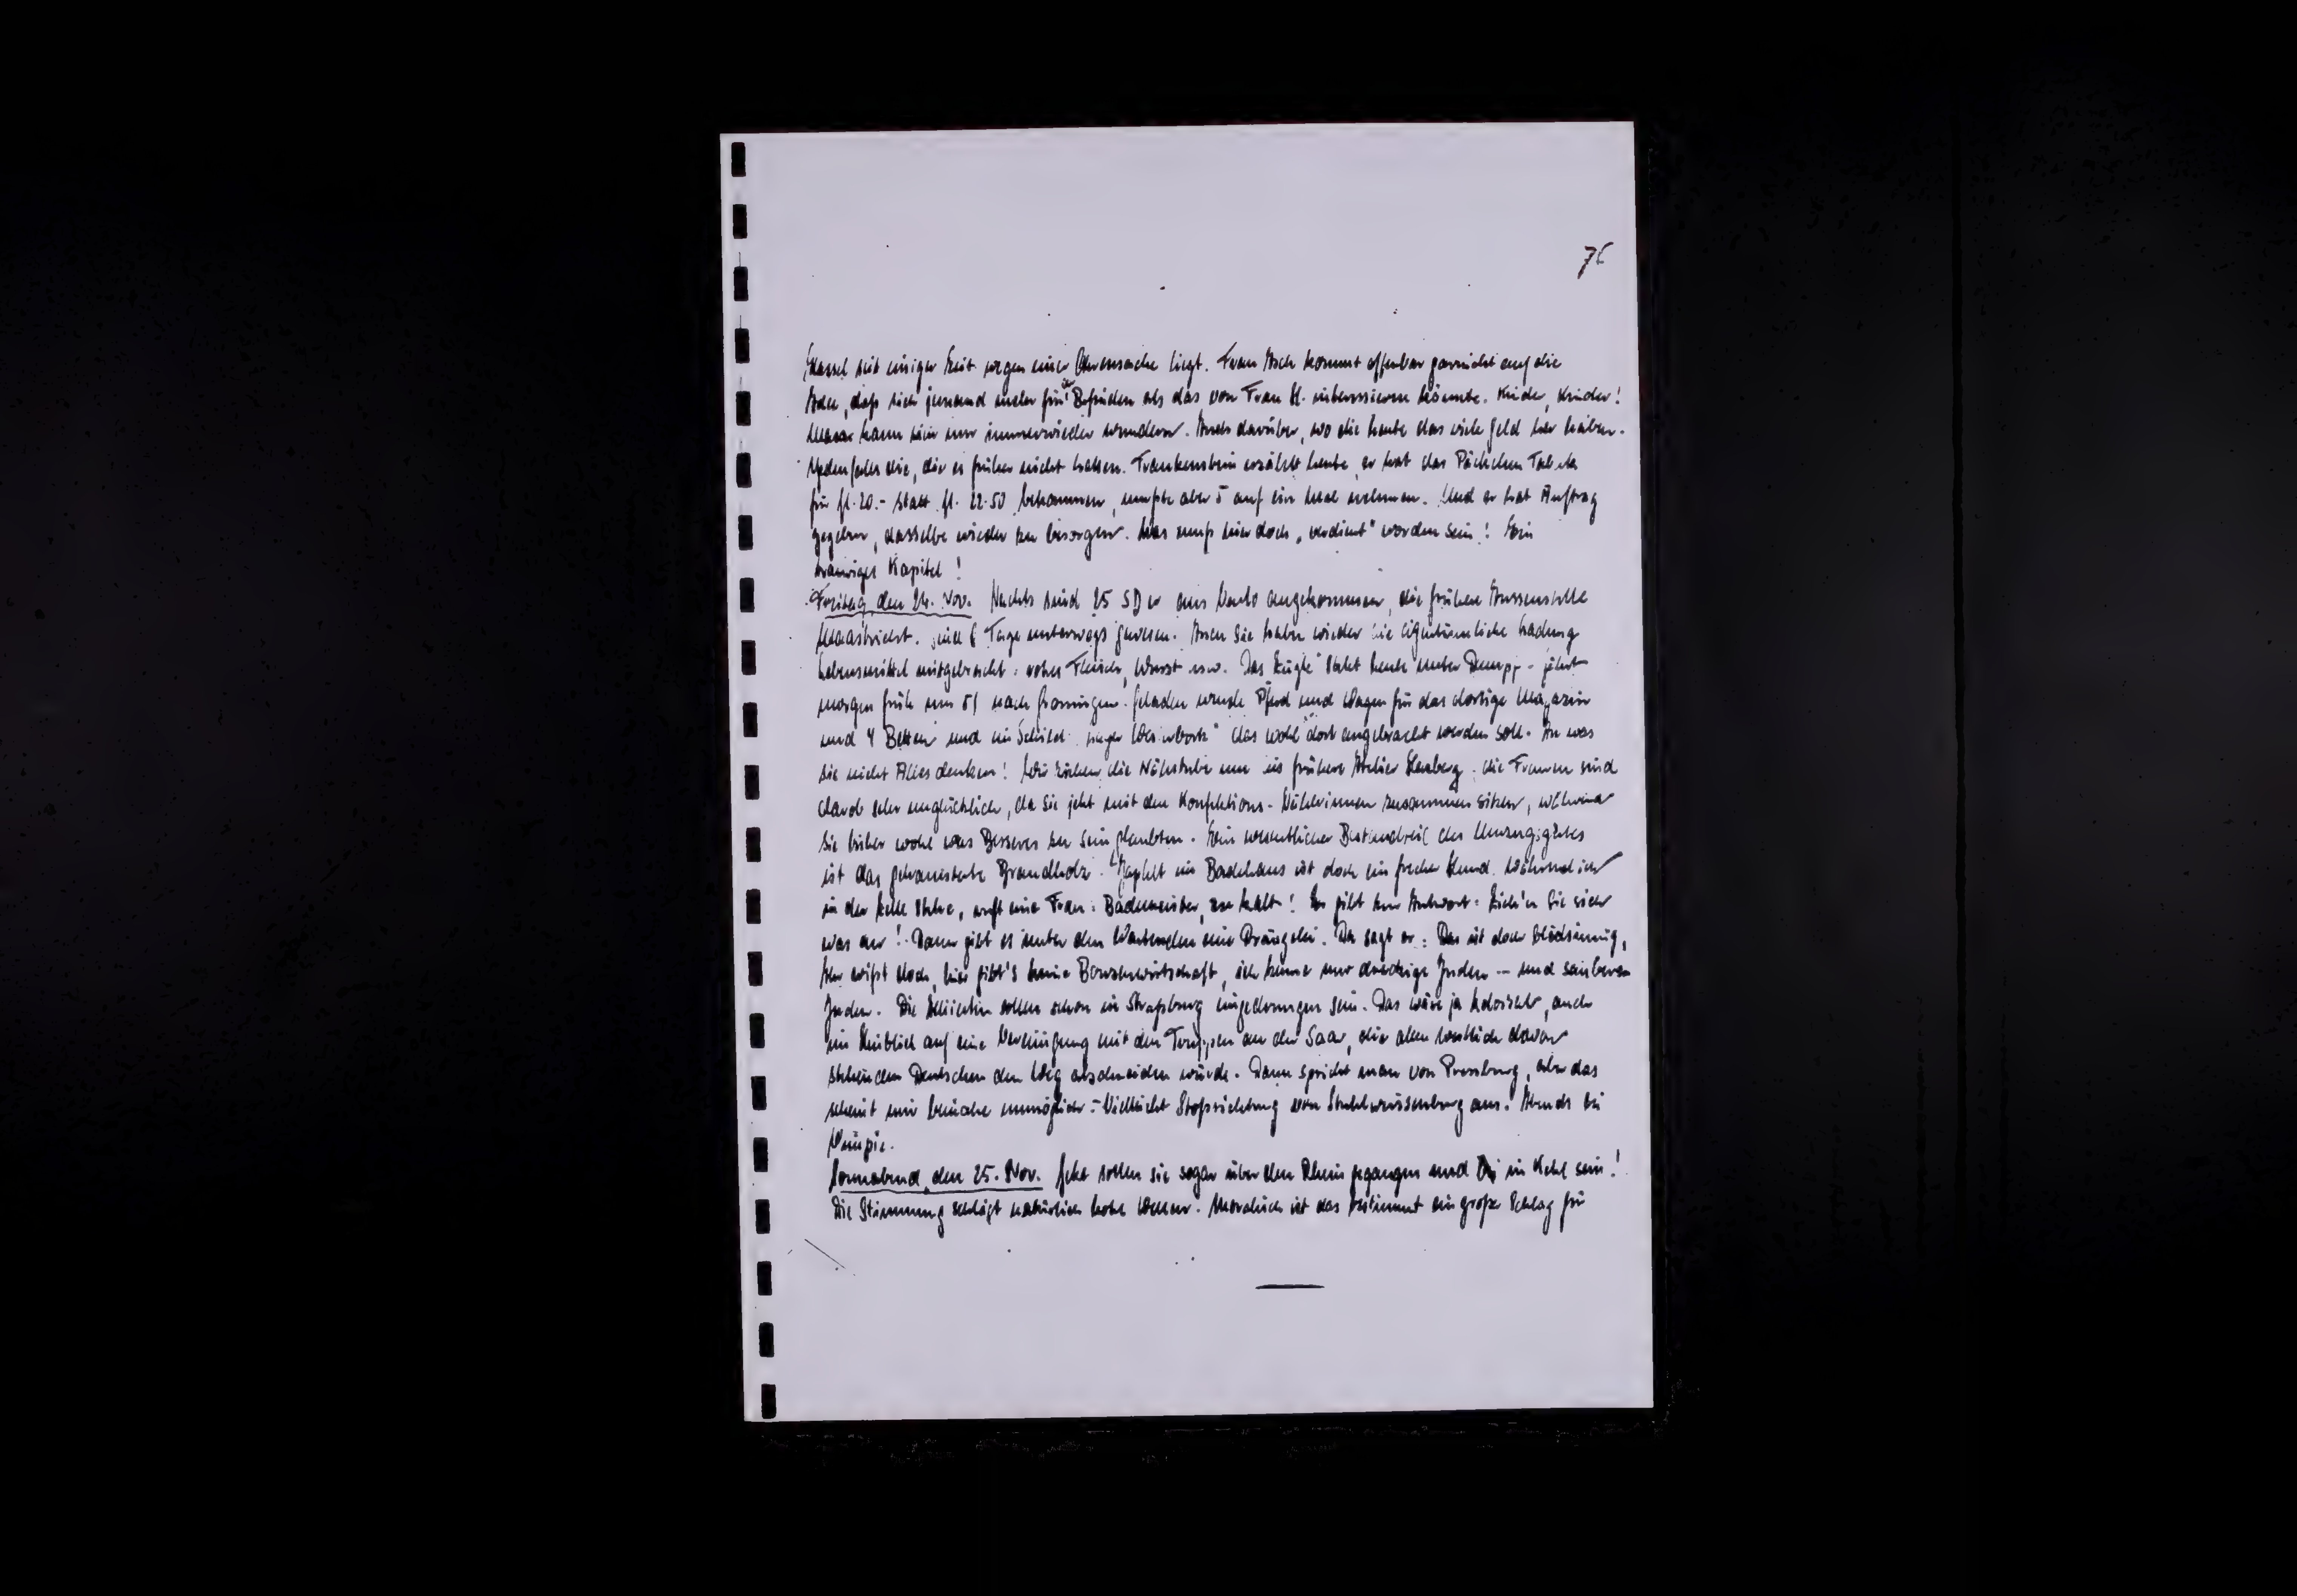 76
Hassel seit einiger Zeit wegen einer Ohrensache liegt. Frau Asch kommt offenbar garnicht auf die
Idee, daß sich jemand mehr für 's Befinden als das von Frau H. interessieren könnte. Kinder, Kinder!
Man kann sich nur immerwieder wundern. Auch darüber, wo die Leute das viele Geld her haben.
Jedenfalls die, die es früher nicht hatten. Frankenstein erzählt heute, er hat das Päckchen Tabak
für fl. 20.- statt fl. 22.50 bekommen, mußte aber 5 auf ein Mal nehmen. Und er hat Auftrag
gegeben, dasselbe wieder zu besorgen. Was muß hier doch „verdient" worden sein! Ein
trauriges Kapitel!
Freitag, den 24. Nov. Nachts sind 25 SD er aus Venlo angekommen, die frühere Aussenstelle
Maastricht. Sind 6 Tage unterwegs gewesen. Auch sie haben wieder die eigentümliche Ladung
Lebensmittel mitgebracht: rohes Fleisch, Wurst usw. Das Zügle steht heute unter Dampf - fährt
morgen früh um 5 nach Groningen. Geladen wurde Pferd und Wagen für das dortige Magazin
und 4 Betten und ein Schild: Lager Westerbork" das wohl dort angebracht werden soll. An was
sie nicht Alles denken! Wir ziehen die Nähstube um ins frühere Atelier die Frauen sind
darob sehr unglücklich, da sie jetzt mit den Konfektions-Näherinnen zusammen sitzen, während
sie bisher wohl was Besseres zu sein glaubten. Ein wesentlicher Bestandteil des Umzugsgutes
ist das gehamsterte Brandholz. Japhet im Badehaus ist doch ein frecher Hund. Während ich
in der Zelle stehe, ruft eine Frau: Bademeister, zu kalt! Er gibt zur Antwort: Zieh'n Sie sich
was an! Dann gibt es unter den Wartenden eine Drängelei. Da sagt er: Das ist doch blödsinnig,
Ihr wißt doch, hier gibt's keine Bonzenwirtschaft, ich kenne nur dreckige Juden -- und saubere
Juden. Die Alliierten sollen schon in Straßburg eingedrungen sein. Das wäre ja kolossal, auch
im Hinblick auf eine Vereinigung mit den Truppen an der Saar, die allen westlich davon
stehenden Deutschen den Weg abschneiden würde. Dann spricht man von Pressburg, aber das
scheint mir beinahe unmöglich. - Vielleicht Stoßrichtung von Stuhlweissenburg aus. Abends bei

Sonnabend, den 25. Nov. Jetzt sollen sie sogar über den Rhein gegangen und in Kehl sein!
Die Stimmung schlägt natürlich hohe Wellen. Moralisch ist das bestimmt ein großer Schlag für